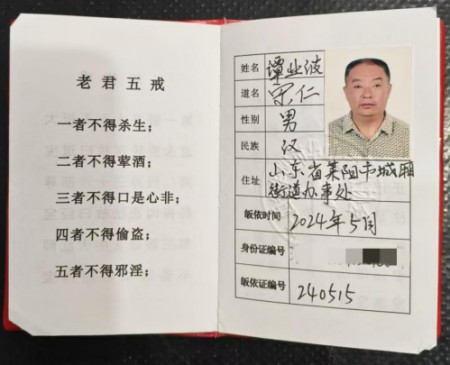 老君五戒
一者不得杀生；
二者不得荤酒；
三者不得口是心非；
四者不得偷盗；
五者不得邪淫；
姓名 谭业波
道名 宗仁
性别 男
民族 汉
住址 山东省莱阳市城厢
街道办事处
皈依时间 2024年5月
身份证编号
皈依证编号 240515